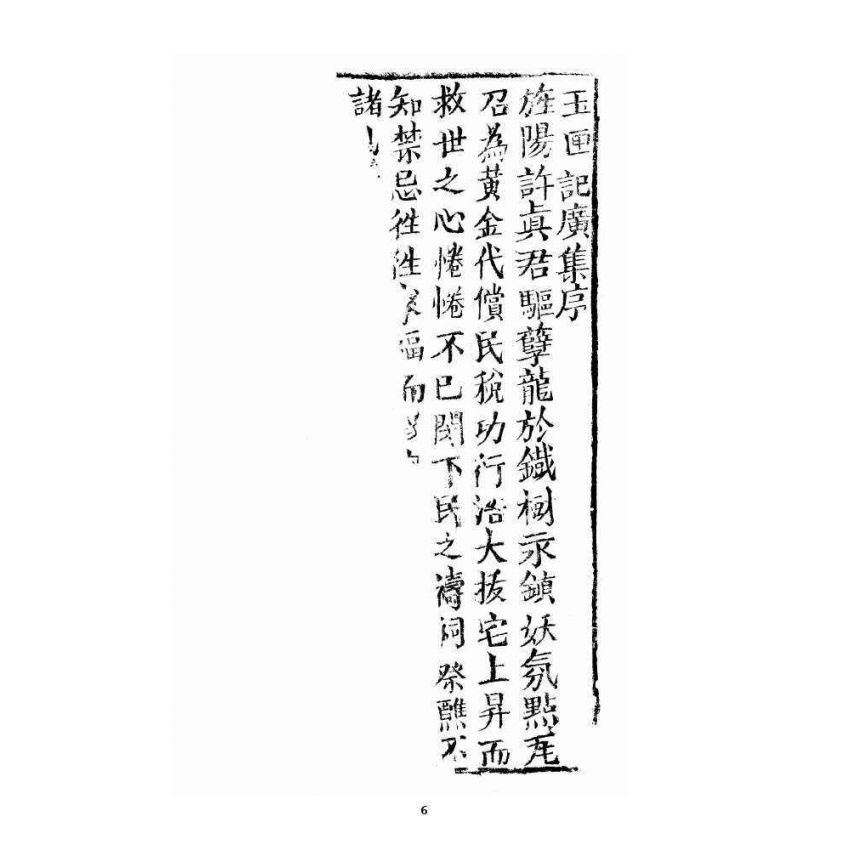 玉匣記廣集序
旌陽許眞君驅孽龍於鐵樹永鎮妖氛點瓦
石為黃金代償民稅功行浩大拔宅上昇而
救世之心惓惓不已閔下民之禱祠祭醮不
知禁忌徃徃求福而
諸
6